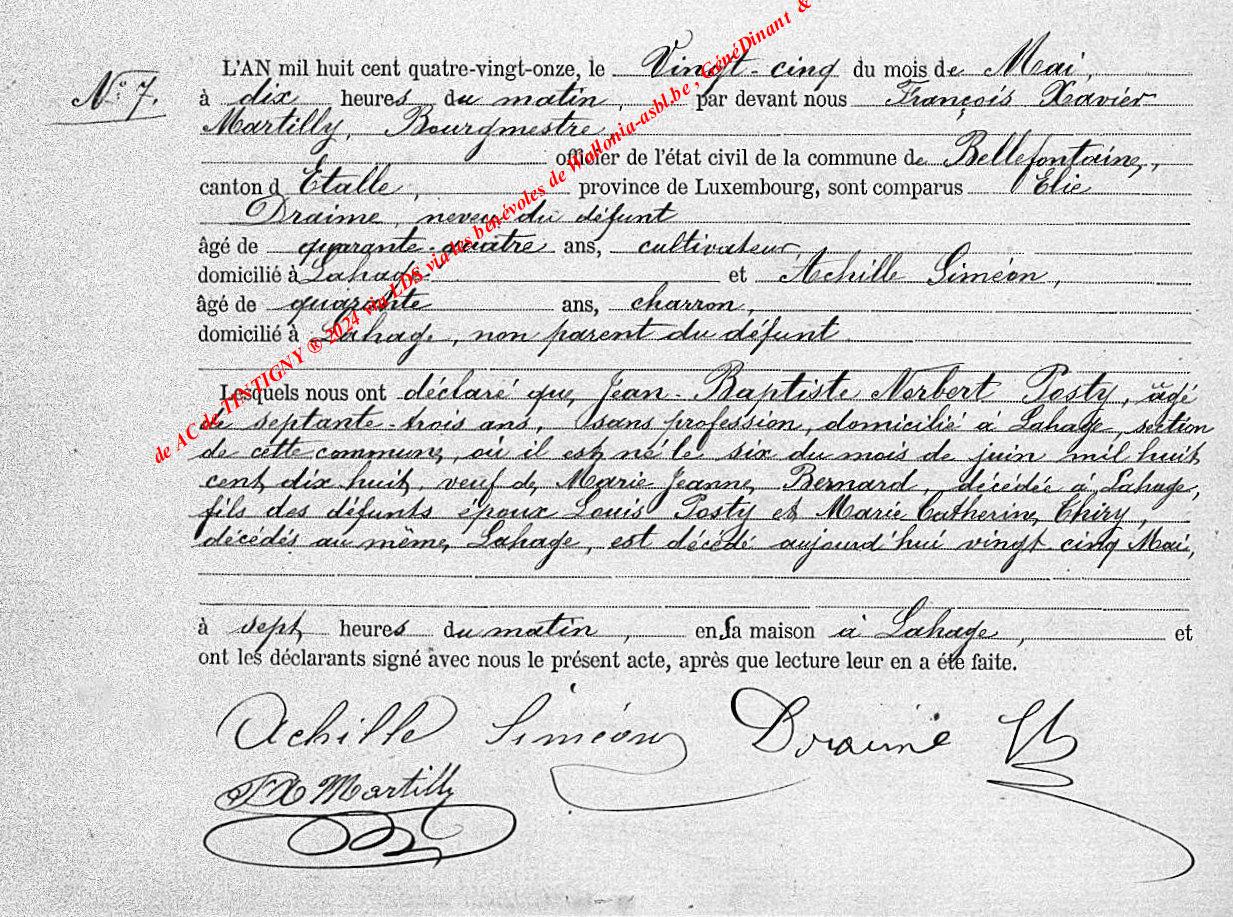 L'AN mil huit cent quatre-vingt-onze, le Vingt-cinq du mois de Mai,
N° 7.
à dix heures du matin, par devant nous François Xavier
Martilly, Bourgmestre
officier de l'état civil de la commune de Bellefontaine,
canton d Etalle, province de Luxembourg, sont comparus Elie
Draime, neveu du défunt
âgé de quarante-quatre ans, cultivateur,
domicilié à Lahage et Achille Siméon,
âgé de quarante ans, charron,
domicilié à Lahage, non parent du défunt
Lesquels nous ont déclaré que Jean-Baptiste Norbert Posty, âgé
de septante-trois ans, sans profession, domicilié à Lahage, section
de cette commune, où il est né le six du mois de juin mil huit
cent dix huit, veuf de Marie Jeanne Bernard, décédée à Lahage,
fils des défunts époux Louis Posty et Marie Catherine Thiry,
décédés au même Lahage, est décédé aujourd'hui vingt-cinq Mai,
à sept heures du matin, en sa maison à Lahage, et
ont les déclarants signé avec nous le présent acte, après que lecture leur en a été faite.
Achille Siméon Draime
FX Martilly
de AC de TINTIGNY ® 2024 via LDS via les bénévoles de Wallonia-asbl.be, GénéDinant &